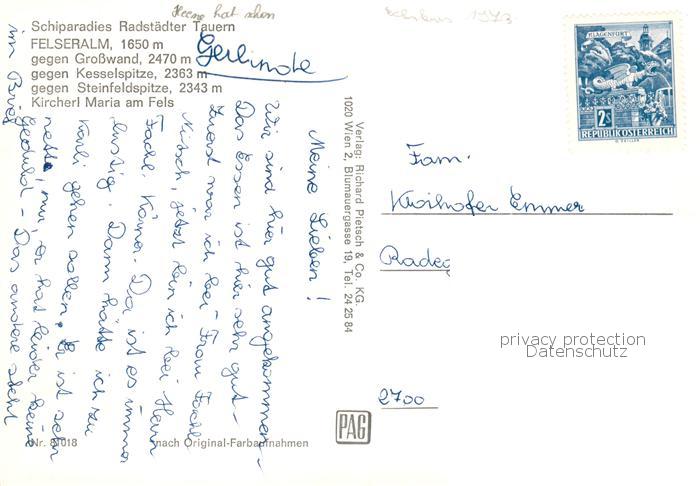 Heene hat schon
Schiparadies Radstädter Tauern
FELSERALM, 1650 m
gegen Großwand, 2470 m
gegen Kesselspitze, 2363 m
gegen Steinfeldspitze, 2343 m
Kircherl Maria am Fels
Gerlinde
1973
KLAGENFURT
2S
REPUBLIK ÖSTERREICH
Meine Lieben!
Wir sind hier gut angekommen –
Das Essen ist hier sehr gut –
Zuerst war ich bei Frau Fachl.
jetzt bin ich bei Herrn
Fachl. Da ist es immer
lustig. Dann hätte ich zu
Karli gehen sollen. Er ist sehr
nett, nur, er hat leider keine
Geduld – Das andere steht
im Brief
Verlag: Richard Pietsch & Co. KG.
1020 Wien 2, Blumauergasse 19, Tel. 24 25 84
Fam.
Emmer
Radeg
2700
privacy protection
Datenschutz
PAG
Nr. 81018
nach Original-Farbaufnahmen